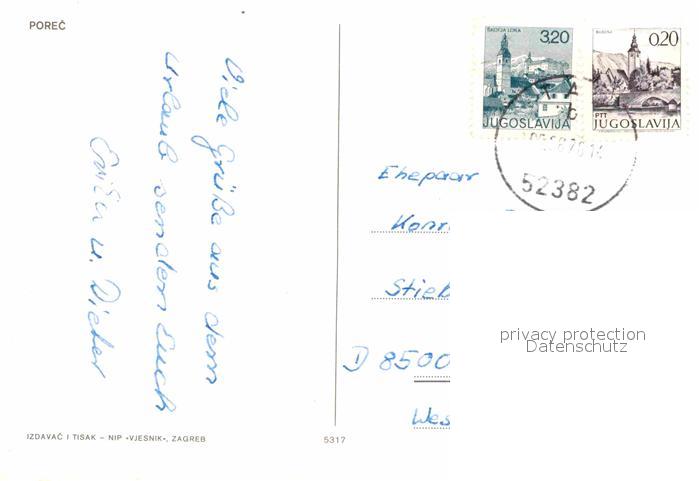 POREČ
Viele Grüße aus dem
Urlaub senden Euch
u. Dieter
ŠKOFJA LOKA
3,20
JUGOSLAVIJA
BOHINJ
0,20
PTT
JUGOSLAVIJA
52382
Ehepaar
Konr
Stieb
D 8500
Wes
privacy protection
Datenschutz
IZDAVAČ I TISAK – NIP »VJESNIK«, ZAGREB
5317